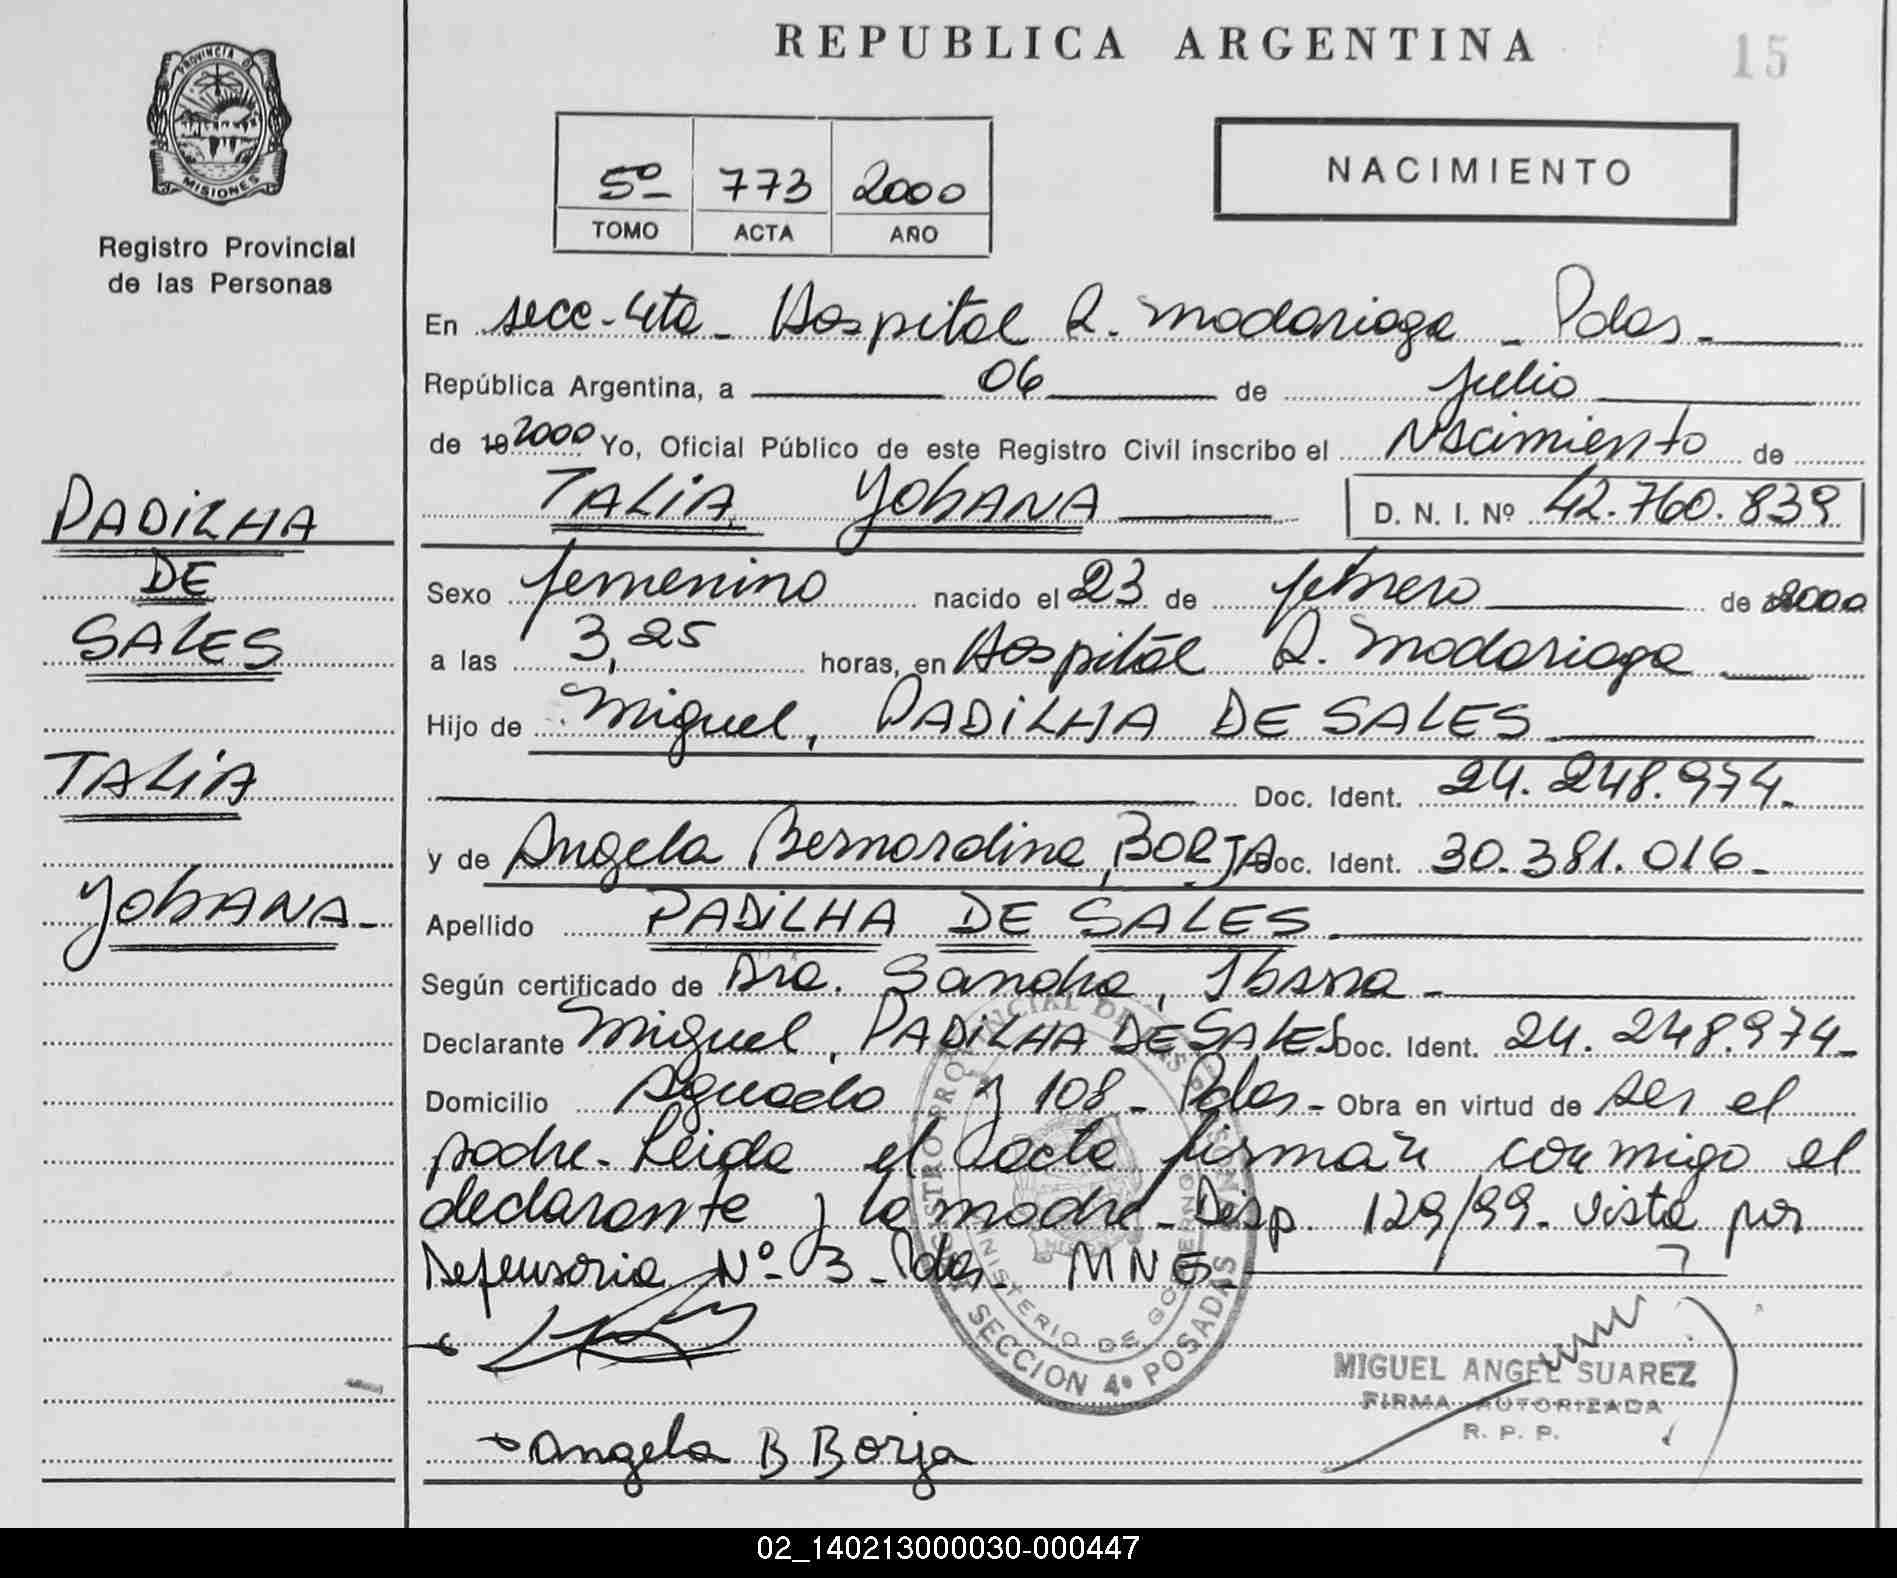 REPUBLICA ARGENTINA
15
PROVINCIA DE
MISIONES
Registro Provincial
de las Personas
5º 773 2000
TOMO ACTA AÑO
NACIMIENTO
En secc-4ta- Hospital R. Madariaga - Pdas -
República Argentina, a 06 de Julio
de 19 2000 Yo, Oficial Público de este Registro Civil inscribo el Nacimiento de
TALIA YOHANA D. N. I. Nº 42.760.839
PADILHA
DE
SALES
TALIA
YOHANA -
Sexo femenino nacido el 23 de febrero de 2000
a las 3,25 horas, en Hospital R. Madariaga
Hijo de Miguel, PADILHA DE SALES
Doc. Ident. 24.248.974-
y de Angela Bernardina, BORJA Doc. Ident. 30.381.016-
Apellido PADILHA DE SALES
Según certificado de Dra. Sandra, Ibarra -
Declarante Miguel, PADILHA DE SALES Doc. Ident. 24.248.974-
Domicilio Aguado y 108 - Pdas - Obra en virtud de ser el
padre- Leida el acta firman conmigo el
declarante y la madre- Disp. 129/99- vista por
Defensoria Nº 3 - Pdas- MNE-
REGISTRO PROVINCIAL DE LAS PERSONAS
MINISTERIO DE GOBIERNO
SECCION 4º POSADAS
MIGUEL ANGEL SUAREZ
FIRMA AUTORIZADA
R. P. P.
Angela B Borja
02_140213000030-000447